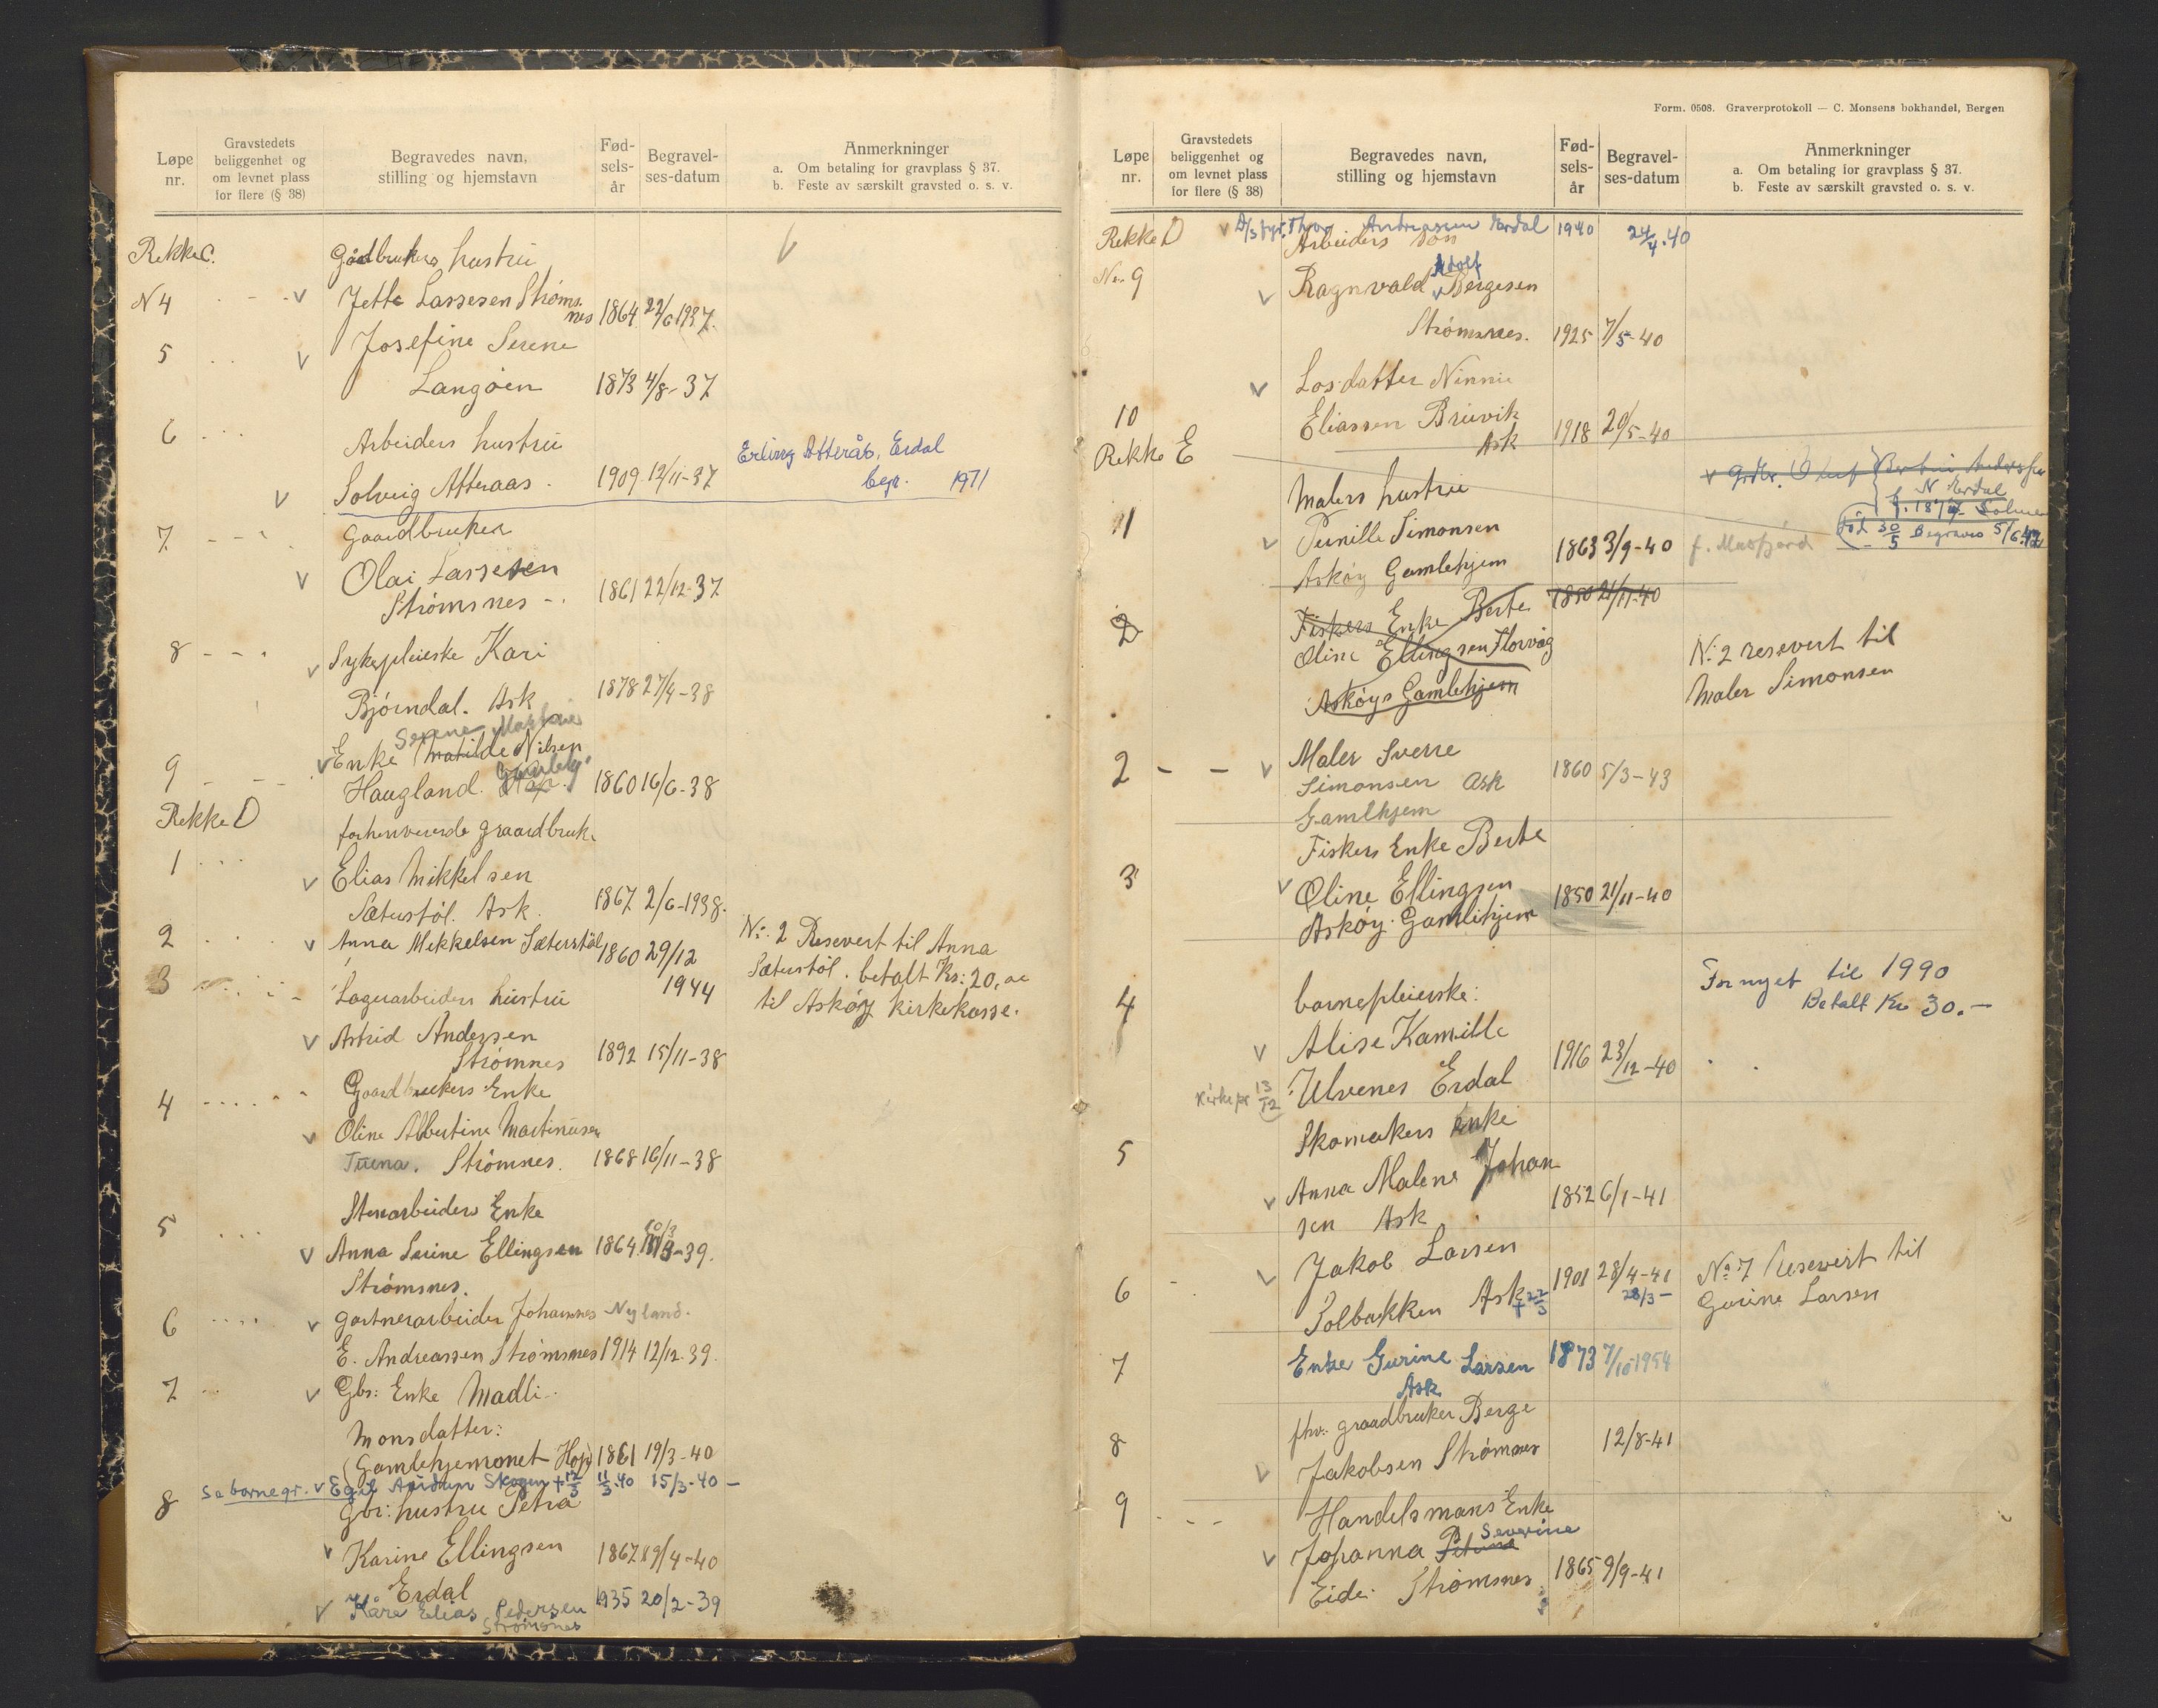 Løpe nr.
Gravstedets beliggenhet og om levnet plass for flere (§ 38)
Begravedes navn, stilling og hjemstavn
Fød-sels-år
Begravel-ses-datum
Anmerkninger
a. Om betaling for gravplass § 37.
b. Feste av særskilt gravsted o. s. v.
Rekke C. Gådbrukers hustru
N 4 v Jette Lassesen Strøms-
nes 1864 22/6 1937.
5 v Josefine Serene
Langøen 1873 4/8-37
6 Arbeiders hustru
v Solveig Atteraas. 1909 12/11-37
Erling Atterås, Erdal
begr. 1971
7 Gaardbruker
v Olai Lassesen
Strømsnes 1861 22/12-37
8 v Sykepleierske Kari
Bjørndal. Ask 1878 27/4-38
Serene
9 v Enke Matilde Nilsen
Haugland. 1860 16/6-38
Rekke D forhenverende graardbruk.
1 v Elias Mikkelsen
Sæterstøl. Ask. 1867 2/6-1938.
2 v Anna Mikkelsen Sæterstøl 1860 29/12
1944
No: 2 Resevert til Anna
Sæterstøl. betalt Kr: 20,00
til Askøy Kirkekasse.
3 Lagerarbeiders hustru
v Astrid Andersen
Strømnes 1892 15/11-38
4 Gaardbrukers Enke
v Oline Albertine Martinusen
Strømnes. 1868 16/11-38
5 Stenarbeiders Enke
v Anna Serine Ellingsen 1864 10/3 -39.
Strømsnes.
6 v gartnerarbeider Johannes Nyland.
E. Andreassen Strømsnes 1914 12/12-39.
7 v Gbr: Enke Madli
Monsdatter:
(Gamlehjemmet Hop) 1861 19/3-40
Se barnegr. v Egil Skogen + 12/3 11/3.40 15/3-40 -
8 Gbr: hustru Petra
v Karine Ellingsen 1867 19/4-40
Erdal
v Kåre Elias Pedersen 1935 20/2-39
Strømsnes
Form. 0508. Graverprotokoll — C. Monsens bokhandel, Bergen
Løpe nr.
Gravstedets beliggenhet og om levnet plass for flere (§ 38)
Begravedes navn, stilling og hjemstavn
Fød-sels-år
Begravel-ses-datum
Anmerkninger
a. Om betaling for gravplass § 37.
b. Feste av særskilt gravsted o. s. v.
Rekke D v Thor Andreassen Erdal 1940 24/4.40
Arbeiders søn
No. 9 v Ragnvald Adolf Bergesen
Strømsnes. 1925 7/5-40
v Los datter Ninnie
10 Eliassen Bruvik
Ask 1918 20/5-40
Rekke E
v Gbr. Oluf
Erdal
Begraves 5/6.42
Malers hustru
1 v Pernille Simonsen
Askøy Gamlehjem 1863 3/9-40 f. Masfjord
2 Fiskers Enke Berte 1850 21/11-40
Oline Ellingsen Florvåg
Askøys Gamlehjem
No: 2 resevert til
Maler Simonsen
2 v Maler Sverre
Simonsen Ask 1860 5/3-43
Gamlhjem
Fiskers Enke Berte
3 v Oline Ellingsen 1850 21/11-40
Askøy. Gamlehjem
4 barnepleierske:
Fornyet til 1990
Betalt Kr 30.-
v Alise Kamille
Ulvenes Erdal 1916 23/12-40
Kirkepr 13/12
5 Skomakers Enke
v Anna Malene Johan
sen Ask 1852 6/1-41
6 v Jakob Larsen
Solbakken Ask 1901 28/4-41
+ 22/3 28/3-
No: 7 Resevert til
Gurine Larsen
7 Enke Gurine Larsen 1873 7/10-1954
Ask
8 fhv. graadbruker Berge
v Jakobsen Strømsnes 12/8-41
9 Handelsmans Enke
Severine
v Johanna
Eide. Strømsnes 1865 9/9-41